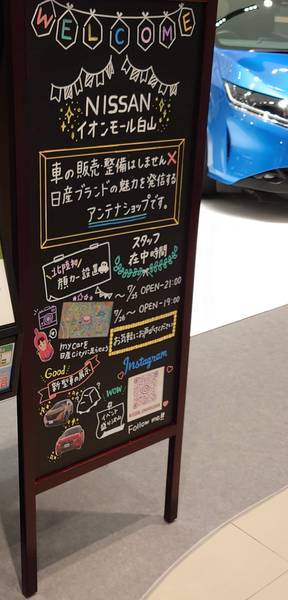 WELCOME
NISSAN
イオンモール白山
車の販売・整備はしません×
日産ブランドの魅力を発信する
アンテナショップです。
北陸初!
顔カー設置
スタッフ
在中時間
～7/25 OPEN-21:00
7/26～ OPEN-19:00
お気軽にお声がけください
my carを
日産cityに走らせよう
Instagram
Good
新型車の展示
WOW
イベント
盛り沢山
Follow me!!